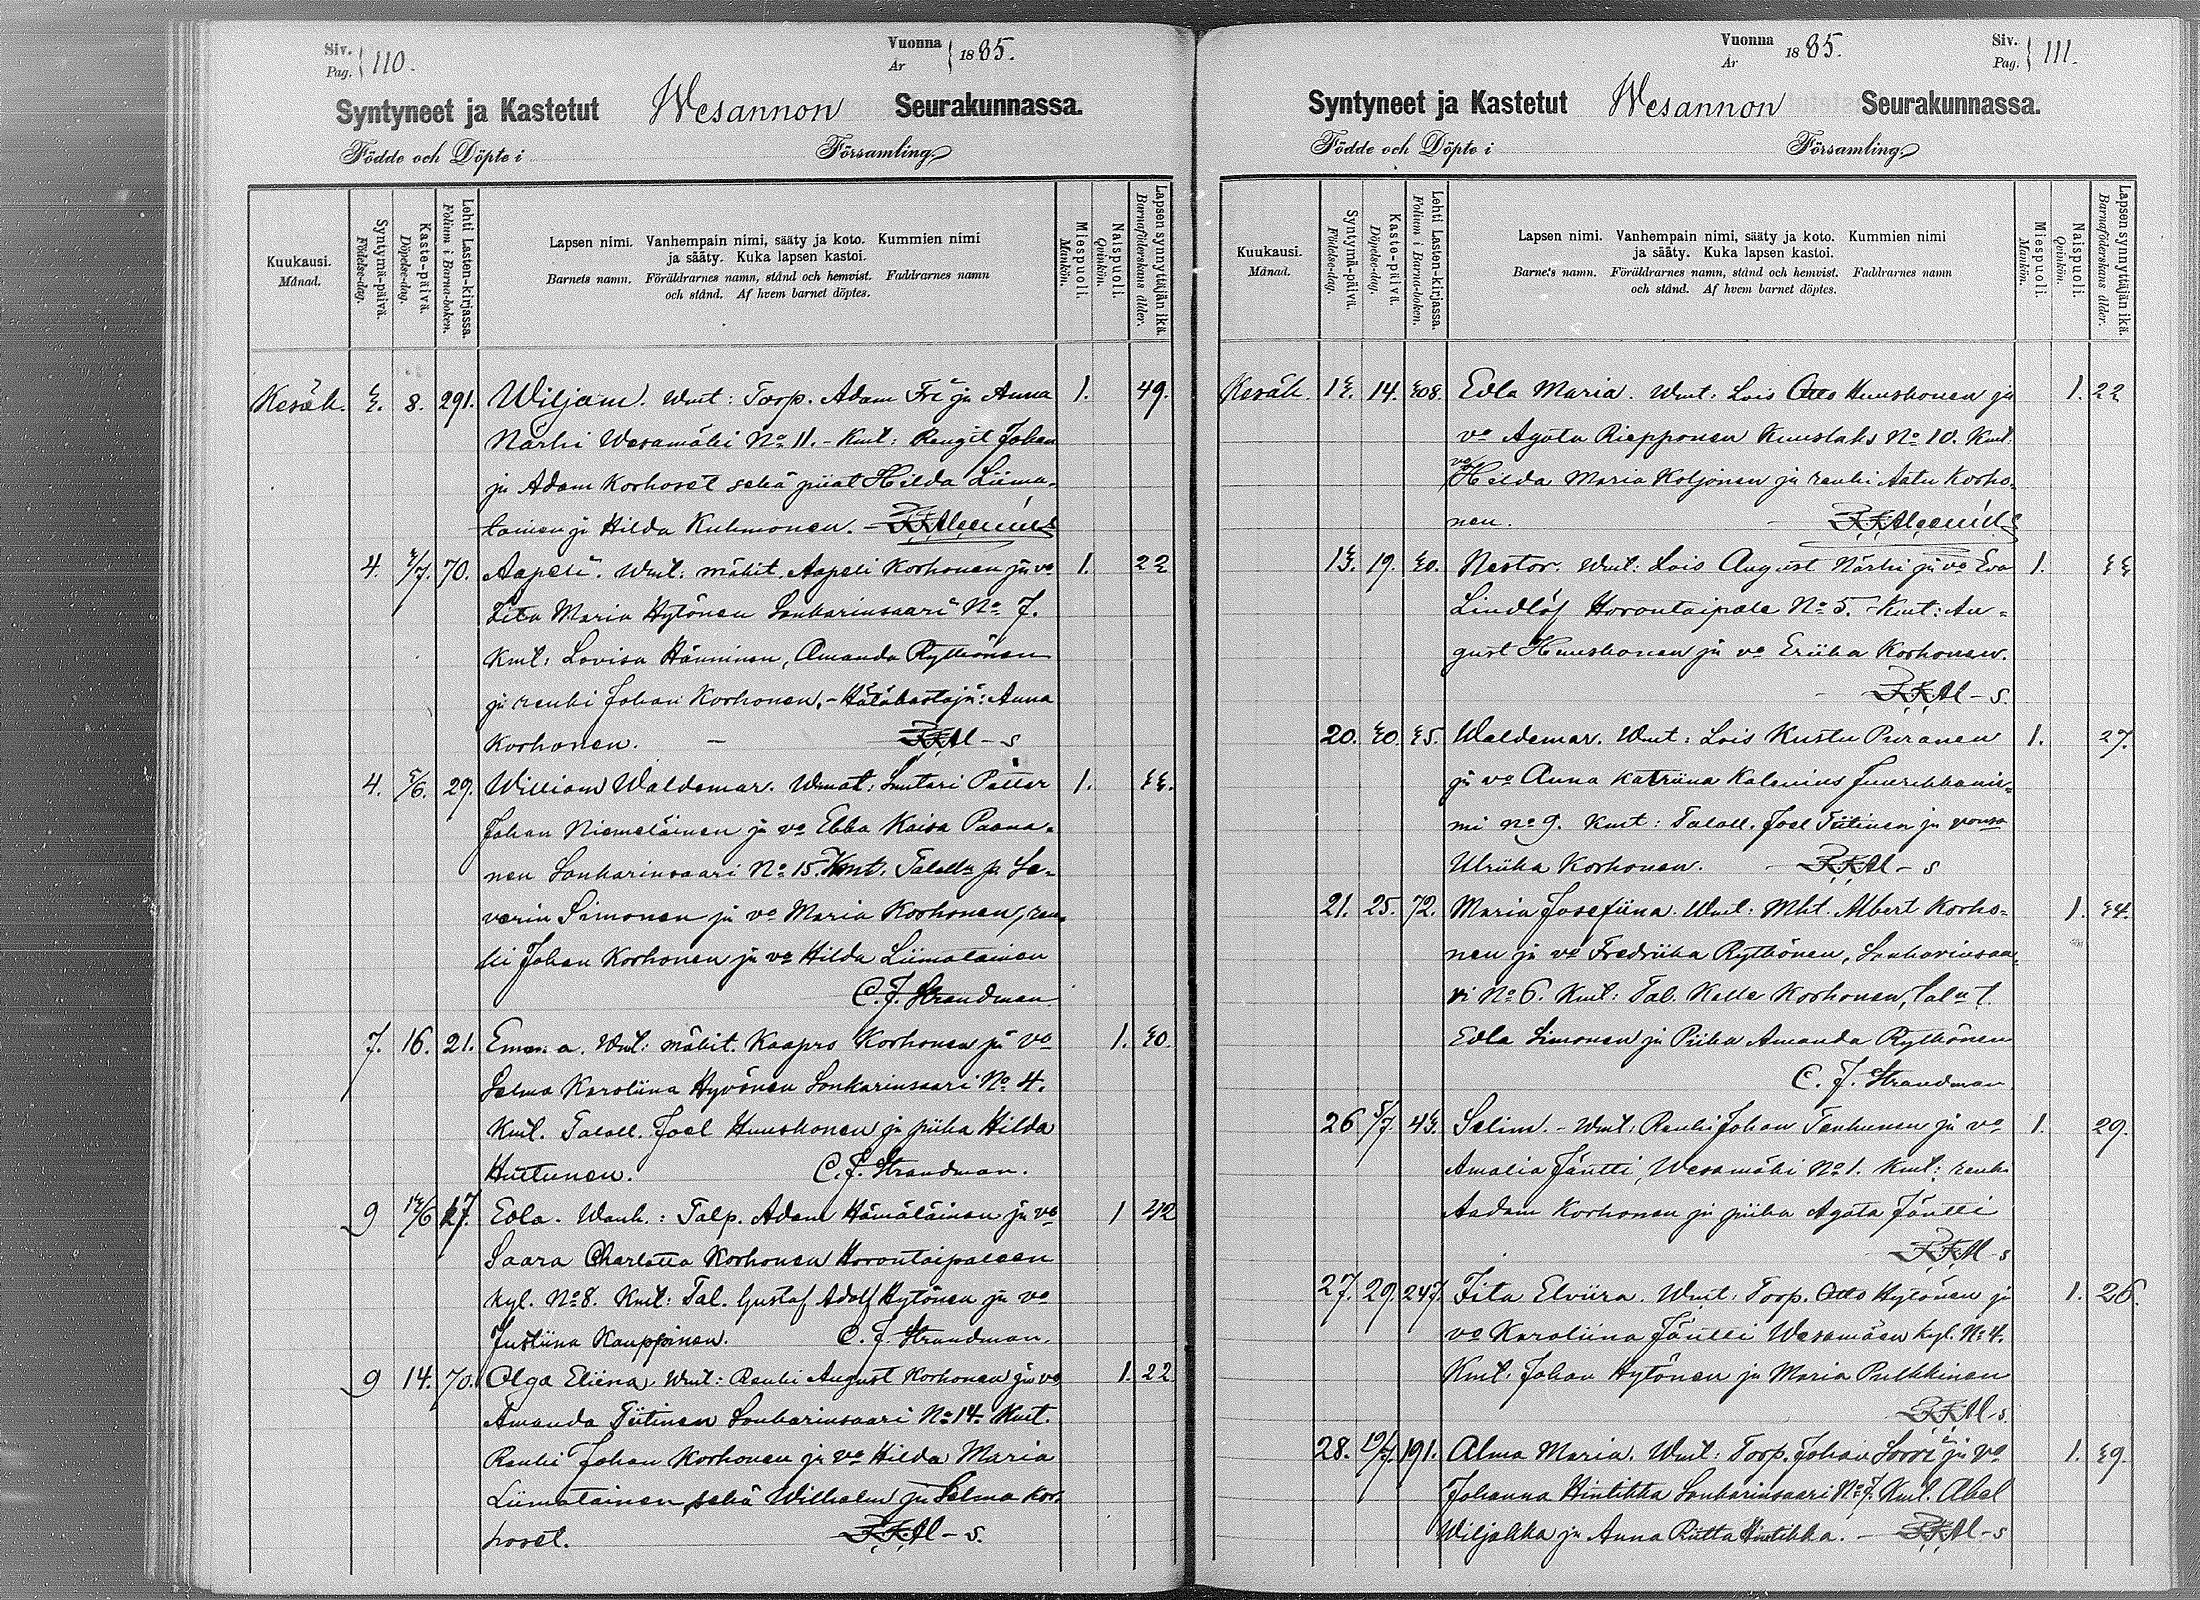 Siv. Pag. 110.
Vuonna År 1885.
Syntyneet ja Kastetut Wesannon Seurakunnassa.
Födde och Döpte i Församling.
Kuukausi. Månad.
Syntymä-päivä. Födelse-dag.
Kaste-päivä. Döpelse-dag.
Lehti Lasten-kirjassa. Folium i Barna-boken.
Lapsen nimi. Vanhempain nimi, sääty ja koto. Kummien nimi
ja sääty. Kuka lapsen kastoi.
Barnets namn. Föräldrarnes namn, stånd och hemvist. Faddrarnes namn
och stånd. Af hvem barnet döptes.
Miespuoli. Mankön.
Naispuoli. Qvinkön.
Lapsen synnyttäjän ikä. Barnaföderskans ålder.
Kesäk. 3. 8. 291. Wiljam. Wmt: Torp. Adam Fri ja Anna 1. 49.
Närhi Wesamäki No 11. - Kmt: Rengit Johan
ja Adam Korhoset sekä piiat Hilda Liima-
tainen ja Hilda Kuhmonen.
4. 3/7. 70. Aapeli. Wmt: mäkit. Aapeli Korhonen ja vo 1. 22
Fita Maria Hytönen Sonkarinsaari No 7.
Kmt: Lovisa Hänninen, Amanda Rytkönen
ja renki Johan Korhonen. - Hätäkastaja: Anna
Korhonen. - s
4. 5/6. 29. William Waldemar. Wmat: Suutari Petter 1. 33.
Johan Niemeläinen ja vo Ebba Kaisa Paana-
nen Sonkarinsaari No 15. Kmt. Talolln ja Se-
verin Simonen ja vo Maria Korhonen, ren-
ki Johan Korhonen ja vo Hilda Liimatainen
C. J. Strandman
7. 16. 21. Emma. Wmt: mäkit. Kaapro Korhonen ja vo 1. 30.
Selma Karoliina Hyvönen Sonkarinsaari No 4.
Kmt. Taloll. Joel Huuskonen ja piika Hilda
Huttunen. C. J. Strandman.
9 13/6 27. Edla. Wanh.: Talp. Adam Hämäläinen ja vo 1 42
Saara Charlotta Korhonen Horontaipaleen
kyl. No 8. Kmt: Tal. Gustaf Adolf Hytönen ja vo
Justiina Kauppinen. C. J. Strandman.
9 14. 70. Olga Eliina. Wmt: Renki August Korhonen ja vo 1. 22
Amanda Tiitinen Sonkarinsaari No 14. Kmt.
Renki Johan Korhonen ja vo Hilda Maria
Liimatainen sekä Wilhelm ja Selma Kor-
hoset. - s.
Vuonna År 1885.
Siv. Pag. 111.
Syntyneet ja Kastetut Wesannon Seurakunnassa.
Födde och Döpte i Församling.
Kuukausi. Månad.
Syntymä-päivä. Födelse-dag.
Kaste-päivä. Döpelse-dag.
Lehti Lasten-kirjassa. Folium i Barna-boken.
Lapsen nimi. Vanhempain nimi, sääty ja koto. Kummien nimi
ja sääty. Kuka lapsen kastoi.
Barnets namn. Föräldrarnes namn, stånd och hemvist. Faddrarnes namn
och stånd. Af hvem barnet döptes.
Miespuoli. Mankön.
Naispuoli. Qvinkön.
Lapsen synnyttäjän ikä. Barnaföderskans ålder.
Kesäk. 13. 14. 308. Edla Maria. Wmt: Lois Otto Huuskonen ja 1. 22
vo Agata Riepponen Kuuslaks No 10. Kmt.
vo Hilda Maria Koljonen ja renki Aatu Korho-
nen.
13. 19. 30. Nestor. Wmt: Lois August Närhi ja vo Eva 1. 33
Lindlöf Horontaipale No 5. - Kmt: Au-
gust Huuskonen ja vo Eriika Korhonen.
- s.
20. 30. 35. Waldemar. Wmt: Lois Kustu Puranen 1. 27.
ja vo Anna Katriina Kalenius Juurikkanie-
mi No 9. Kmt: Taloll. Joel Tiitinen ja vomo
Ulriika Korhonen. - s
21. 25. 72. Maria Josefiina. Wmt. Mkt. Albert Korho- 1. 34.
nen ja vo Fredriika Rytkönen, Sonkarinsaa-
ri No 6. Kmt: Tal. Kalle Korhonen, tal. t.
Edla Simonen ja Piika Amanda Rytkönen
C. J. Strandman
26 5/7. 43. Selim. - Wmt: Renki Johan Tenhunen ja vo 1. 29.
Amalia Jäntti, Wesamäki No 1. Kmt: renk.
Aadam Korhonen ja piika Agata Jäntti
- s
27. 29. 247. Fita Elviira. Wmt: Torp. Otto Hytönen ja 1. 26.
vo Karoliina Jäntti Wesamäen kyl. No 4.
Kmt. Johan Hytönen ja Maria Pulkkinen
- s.
28. 19/7. 191. Alma Maria. Wmt: Torp. Johan Sorri ja vo 1. 39.
Johanna Hintikka Sonkarinsaari No 7. Kmt. Abel
Wiljakka ja Anna Riitta Hintikka. - s